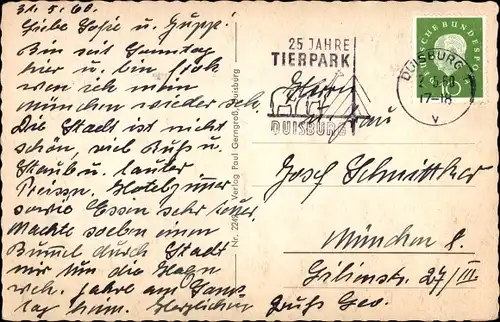 31.5.60.
Liebe Sofie u. Guppi!
Bin seit Sonntag
hier u. bin froh
wen ich mein
München wieder seh.
Die Stadt ist nicht
schön, viel Ruß u.
Staub u. lauter
Preissn. Hotelzimmer
sowie Essen sehr teuer.
Machte soeben einen
Bummel durch Stadt
mir um die Haxn
weh. fahre am Sams
tag heim. Herzlichen
Gruß Geo.
Nr. 224 Verlag Paul Gerngroß, Duisburg
25 JAHRE
TIERPARK
DUISBURG
DUISBURG
60
17-18
v
DEUTSCHE BUNDESPOST
Herrn
u. Frau
Josef Schnittker
München 8.
27/III